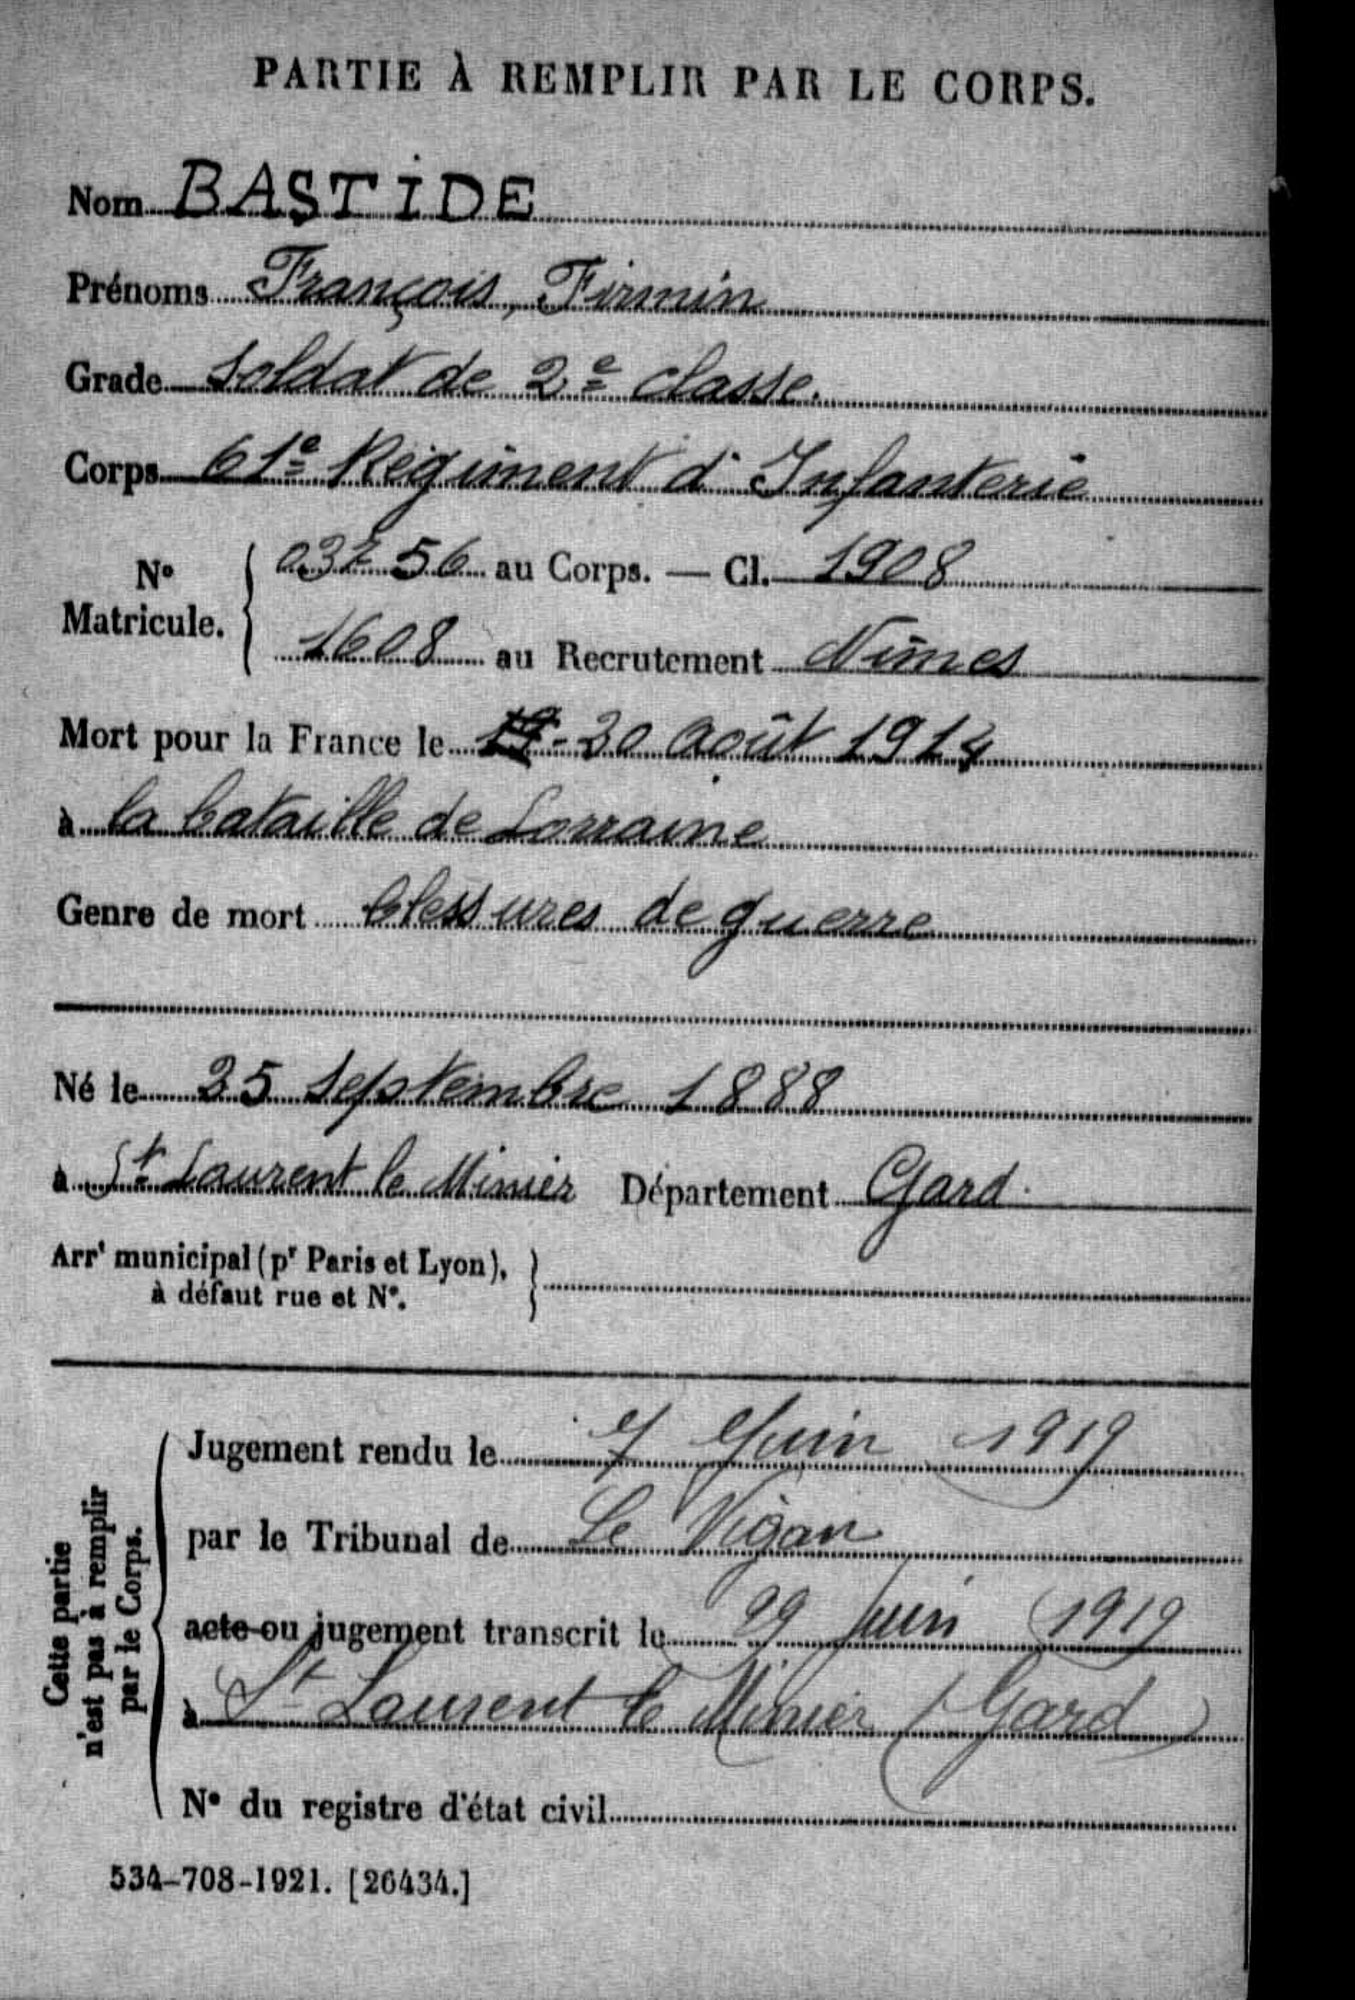 PARTIE À REMPLIR PAR LE CORPS.
Nom BASTIDE
Prénoms François, Firmin
Grade Soldat de 2e classe.
Corps 61e Régiment d'Infanterie
No Matricule. 03256 au Corps. — Cl. 1908
1608 au Recrutement Nîmes
Mort pour la France le - 20 août 1914
à la bataille de Lorraine
Genre de mort blessures de guerre
Né le 25 Septembre 1888
à St Laurent le Minier Département Gard.
Arrt municipal (pr Paris et Lyon),
à défaut rue et No.
Cette partie n'est pas à remplir par le Corps.
Jugement rendu le 7 Juin 1919
par le Tribunal de Le Vigan
acte ou jugement transcrit le 29 juin 1919
à St Laurent le Minier (Gard)
No du registre d'état civil
534-708-1921. [26434.]